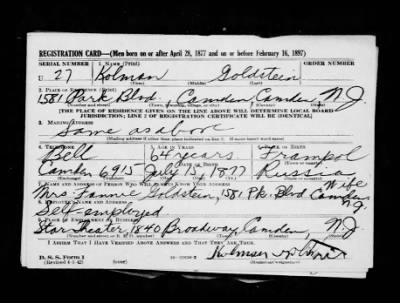 REGISTRATION CARD—(Men born on or after April 28, 1877 and on or before February 16, 1897)
SERIAL NUMBER 1. NAME (Print) ORDER NUMBER
U 27 Kolman Goldstein
(First) (Middle) (Last)
2. PLACE OF RESIDENCE (Print)
1581 Park Blvd., Camden, Camden, N.J.
[THE PLACE OF RESIDENCE GIVEN ON THE LINE ABOVE WILL DETERMINE LOCAL BOARD
JURISDICTION; LINE 2 OF REGISTRATION CERTIFICATE WILL BE IDENTICAL]
3. MAILING ADDRESS
Same as above
4. TELEPHONE 5. AGE IN YEARS 6. PLACE OF BIRTH
Bell 64 years Frampol
DATE OF BIRTH
Camden 6915 July 15, 1877 Russia
7. NAME AND ADDRESS OF PERSON WHO WILL ALWAYS KNOW YOUR ADDRESS
Wife
Mrs Fannie Goldstein, 1581 Pk. Blvd Camden NJ
8. EMPLOYER'S NAME AND ADDRESS
Self employed
9. PLACE OF EMPLOYMENT OR BUSINESS
Star Theater, 1840 Broadway, Camden, N.J.
I AFFIRM THAT I HAVE VERIFIED ABOVE ANSWERS AND THAT THEY ARE TRUE.
D. S. S. Form 1
(Revised 4-1-42) (over)